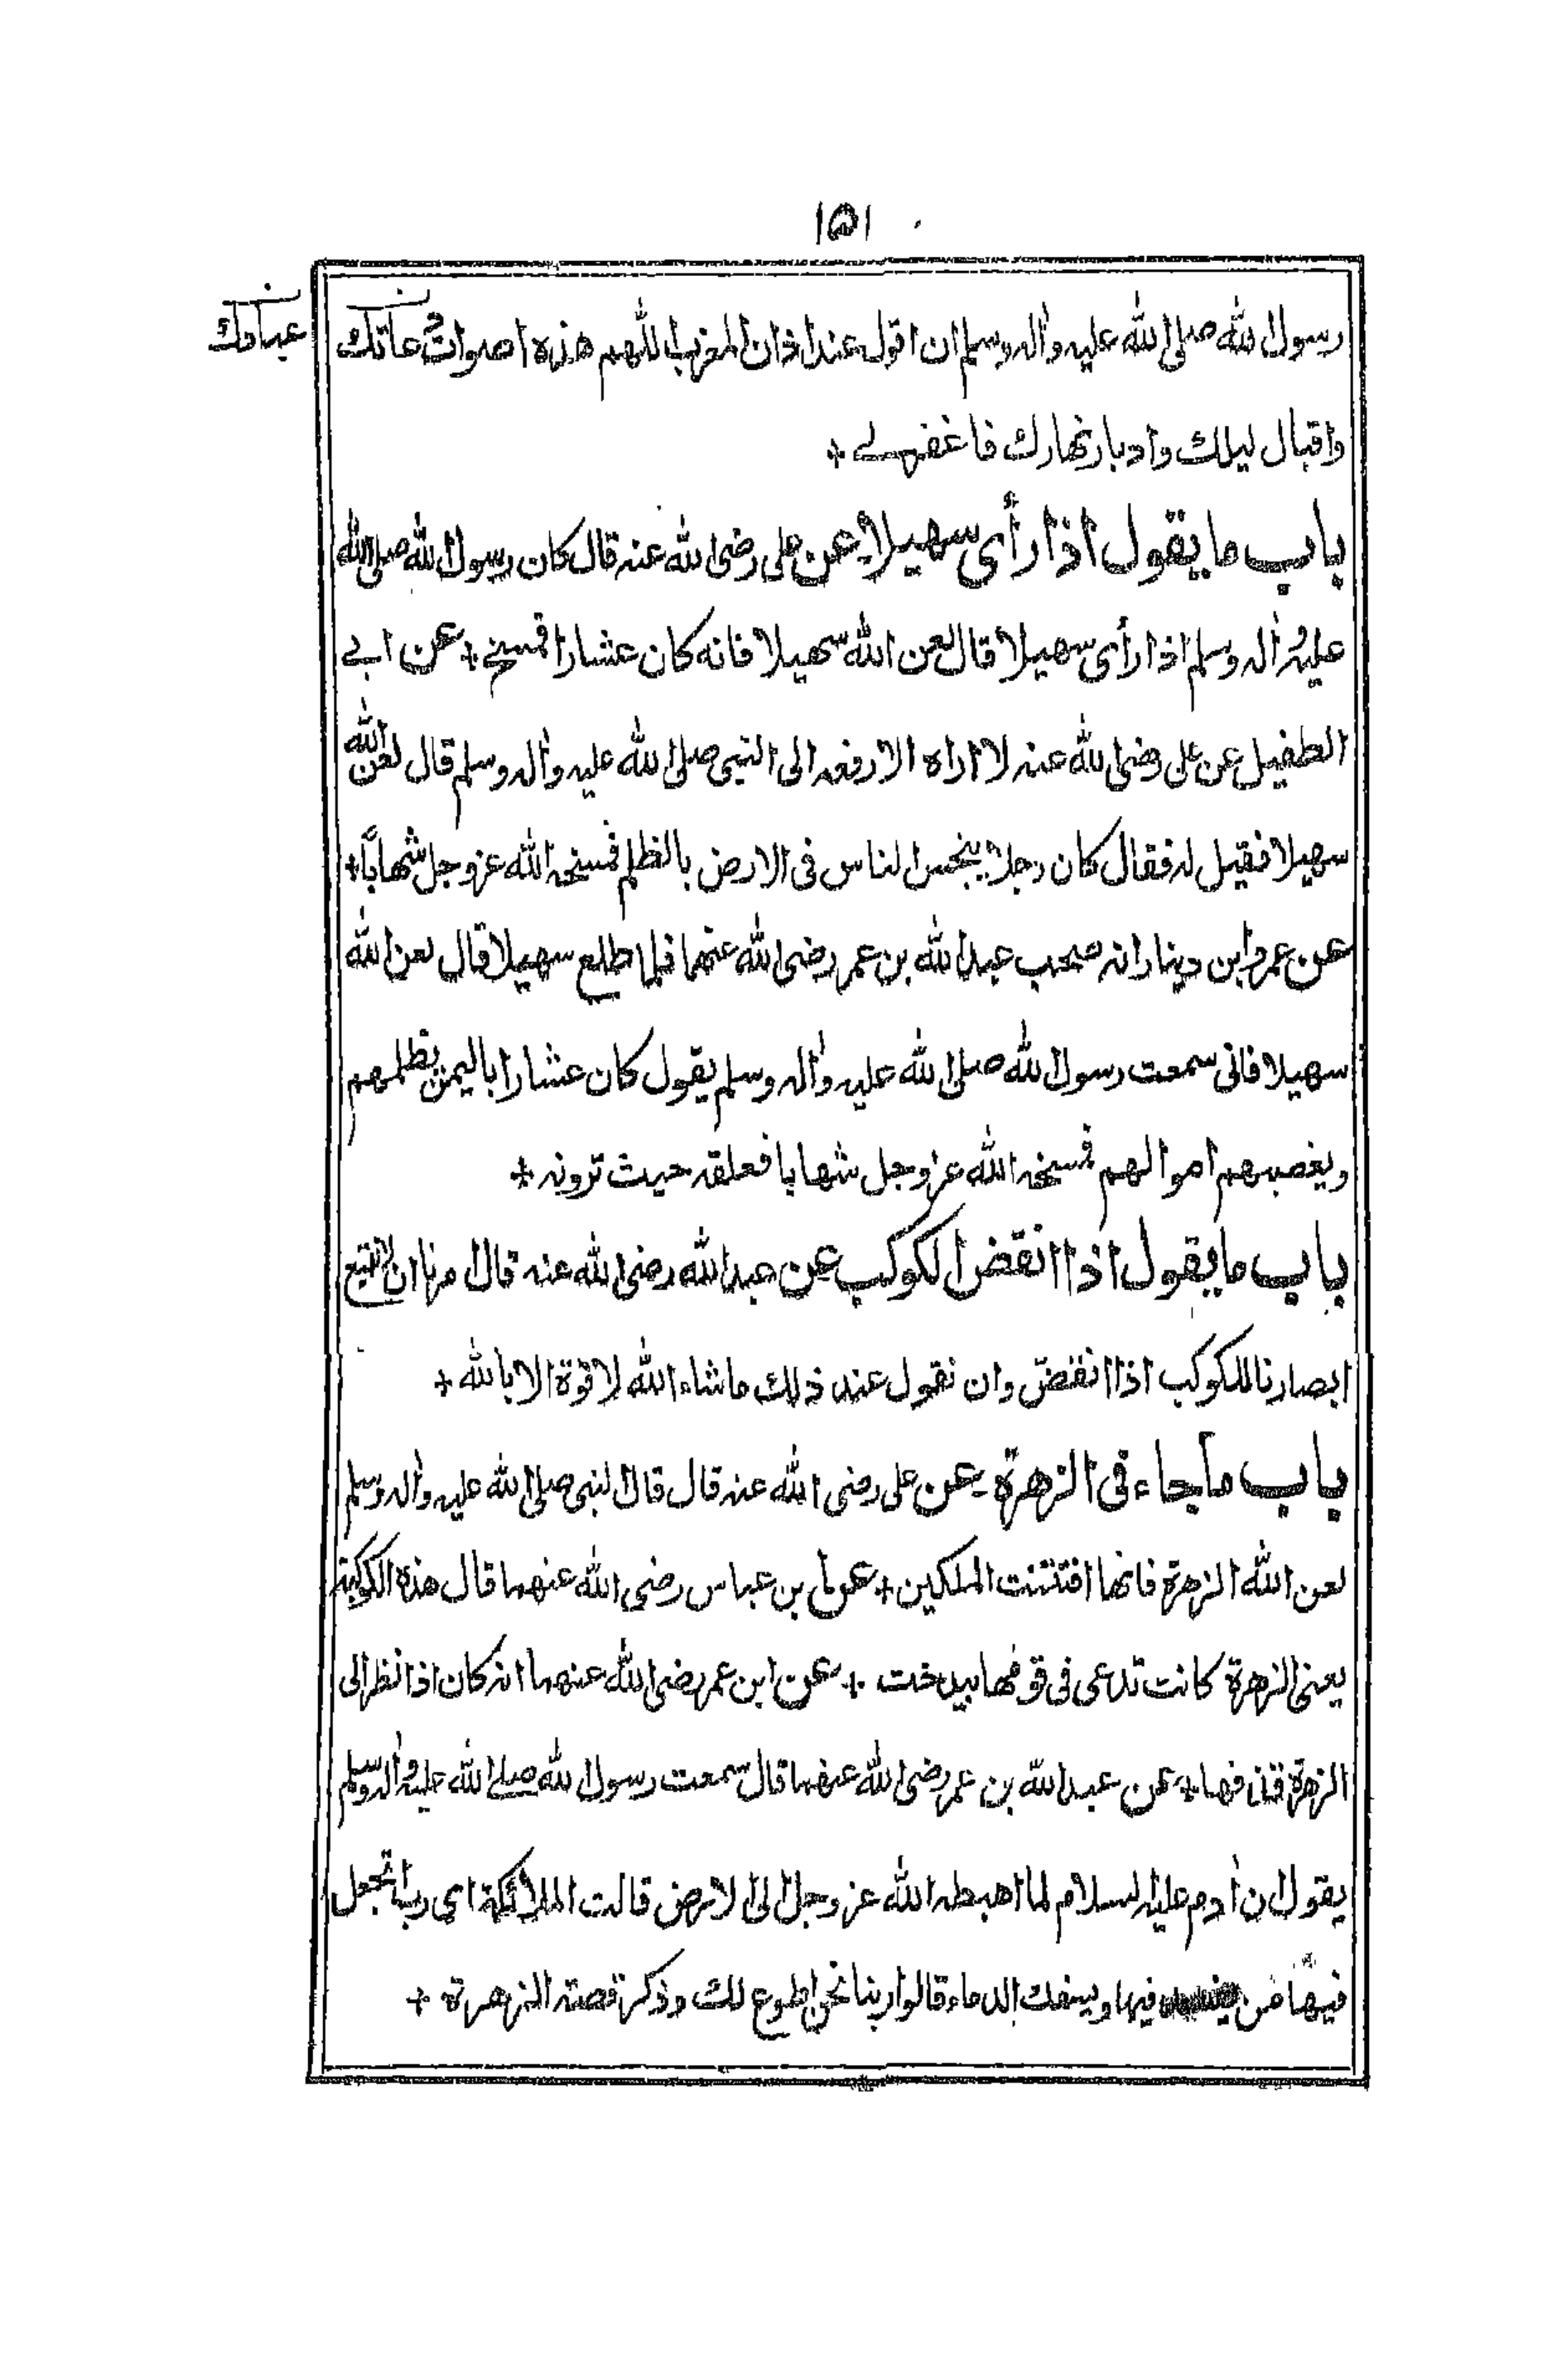 ١٥١
رسول الله صلى الله عليه واٰله وسلم ان اقول عند اذان المغرب اللهم هذه اصوات دعاتك
عبادك
واقبال ليلك وادبار نهارك فاغفر لے +
باب ما يقول اذا رأى سهيلا عن على رضى الله عنه قال كان رسول الله صلى الله
عليه واٰله وسلم اذا رأى سهيلا قال لعن الله سهيلا فانه كان عشارا فمسخ + عن ابے
الطفيل عن على رضى الله عنه لا اراه الا رفعه الى النبى صلى الله عليه واٰله وسلم قال لعن الله
سهيلا فقيل له فقال كان رجلا يبخس الناس فى الارض بالظلم فمسخه الله عز وجل شهابًا +
عن عمرو ابن دينار انه صحب عبد الله بن عمر رضى الله عنهما فلما طلع سهيلا قال لعن الله
سهيلا فانى سمعت رسول الله صلى الله عليه واٰله وسلم يقول كان عشارا باليمن يظلمهم
ويغصبهم اموالهم فمسخه الله عز وجل شهابا فعلقه حيث ترونه +
باب ما يقول اذا انقض الكوكب عن عبد الله رضى الله عنه قال امرنا ان لا نتبع
ابصارنا للكوكب اذا انقضّ وان نقول عند ذلك ماشاء الله لا قوة الا بالله +
باب ما جاء فى الزهرة عن على رضى الله عنه قال قال النبى صلى الله عليه واٰله وسلم
لعن الله الزهرة فانها افتتنت الملكين + عن ابن عباس رضى الله عنهما قال هذه الكوكبة
يعنى الزهرة كانت تدعى فى قومها بيدخت + عن ابن عمر رضى الله عنهما انه كان اذا نظر الى
الزهرة قذفها + عن عبد الله بن عمر رضى الله عنهما قال سمعت رسول الله صلى الله عليه واٰله وسلم
يقول ان اٰدم عليه السلام لما اهبطه الله عز وجل الى الارض قالت الملائكة اى رب اتجعل
فيها من يفسد فيها ويسفك الدماء قالوا ربنا نحن اطوع لك وذكر قصة الزهرة +